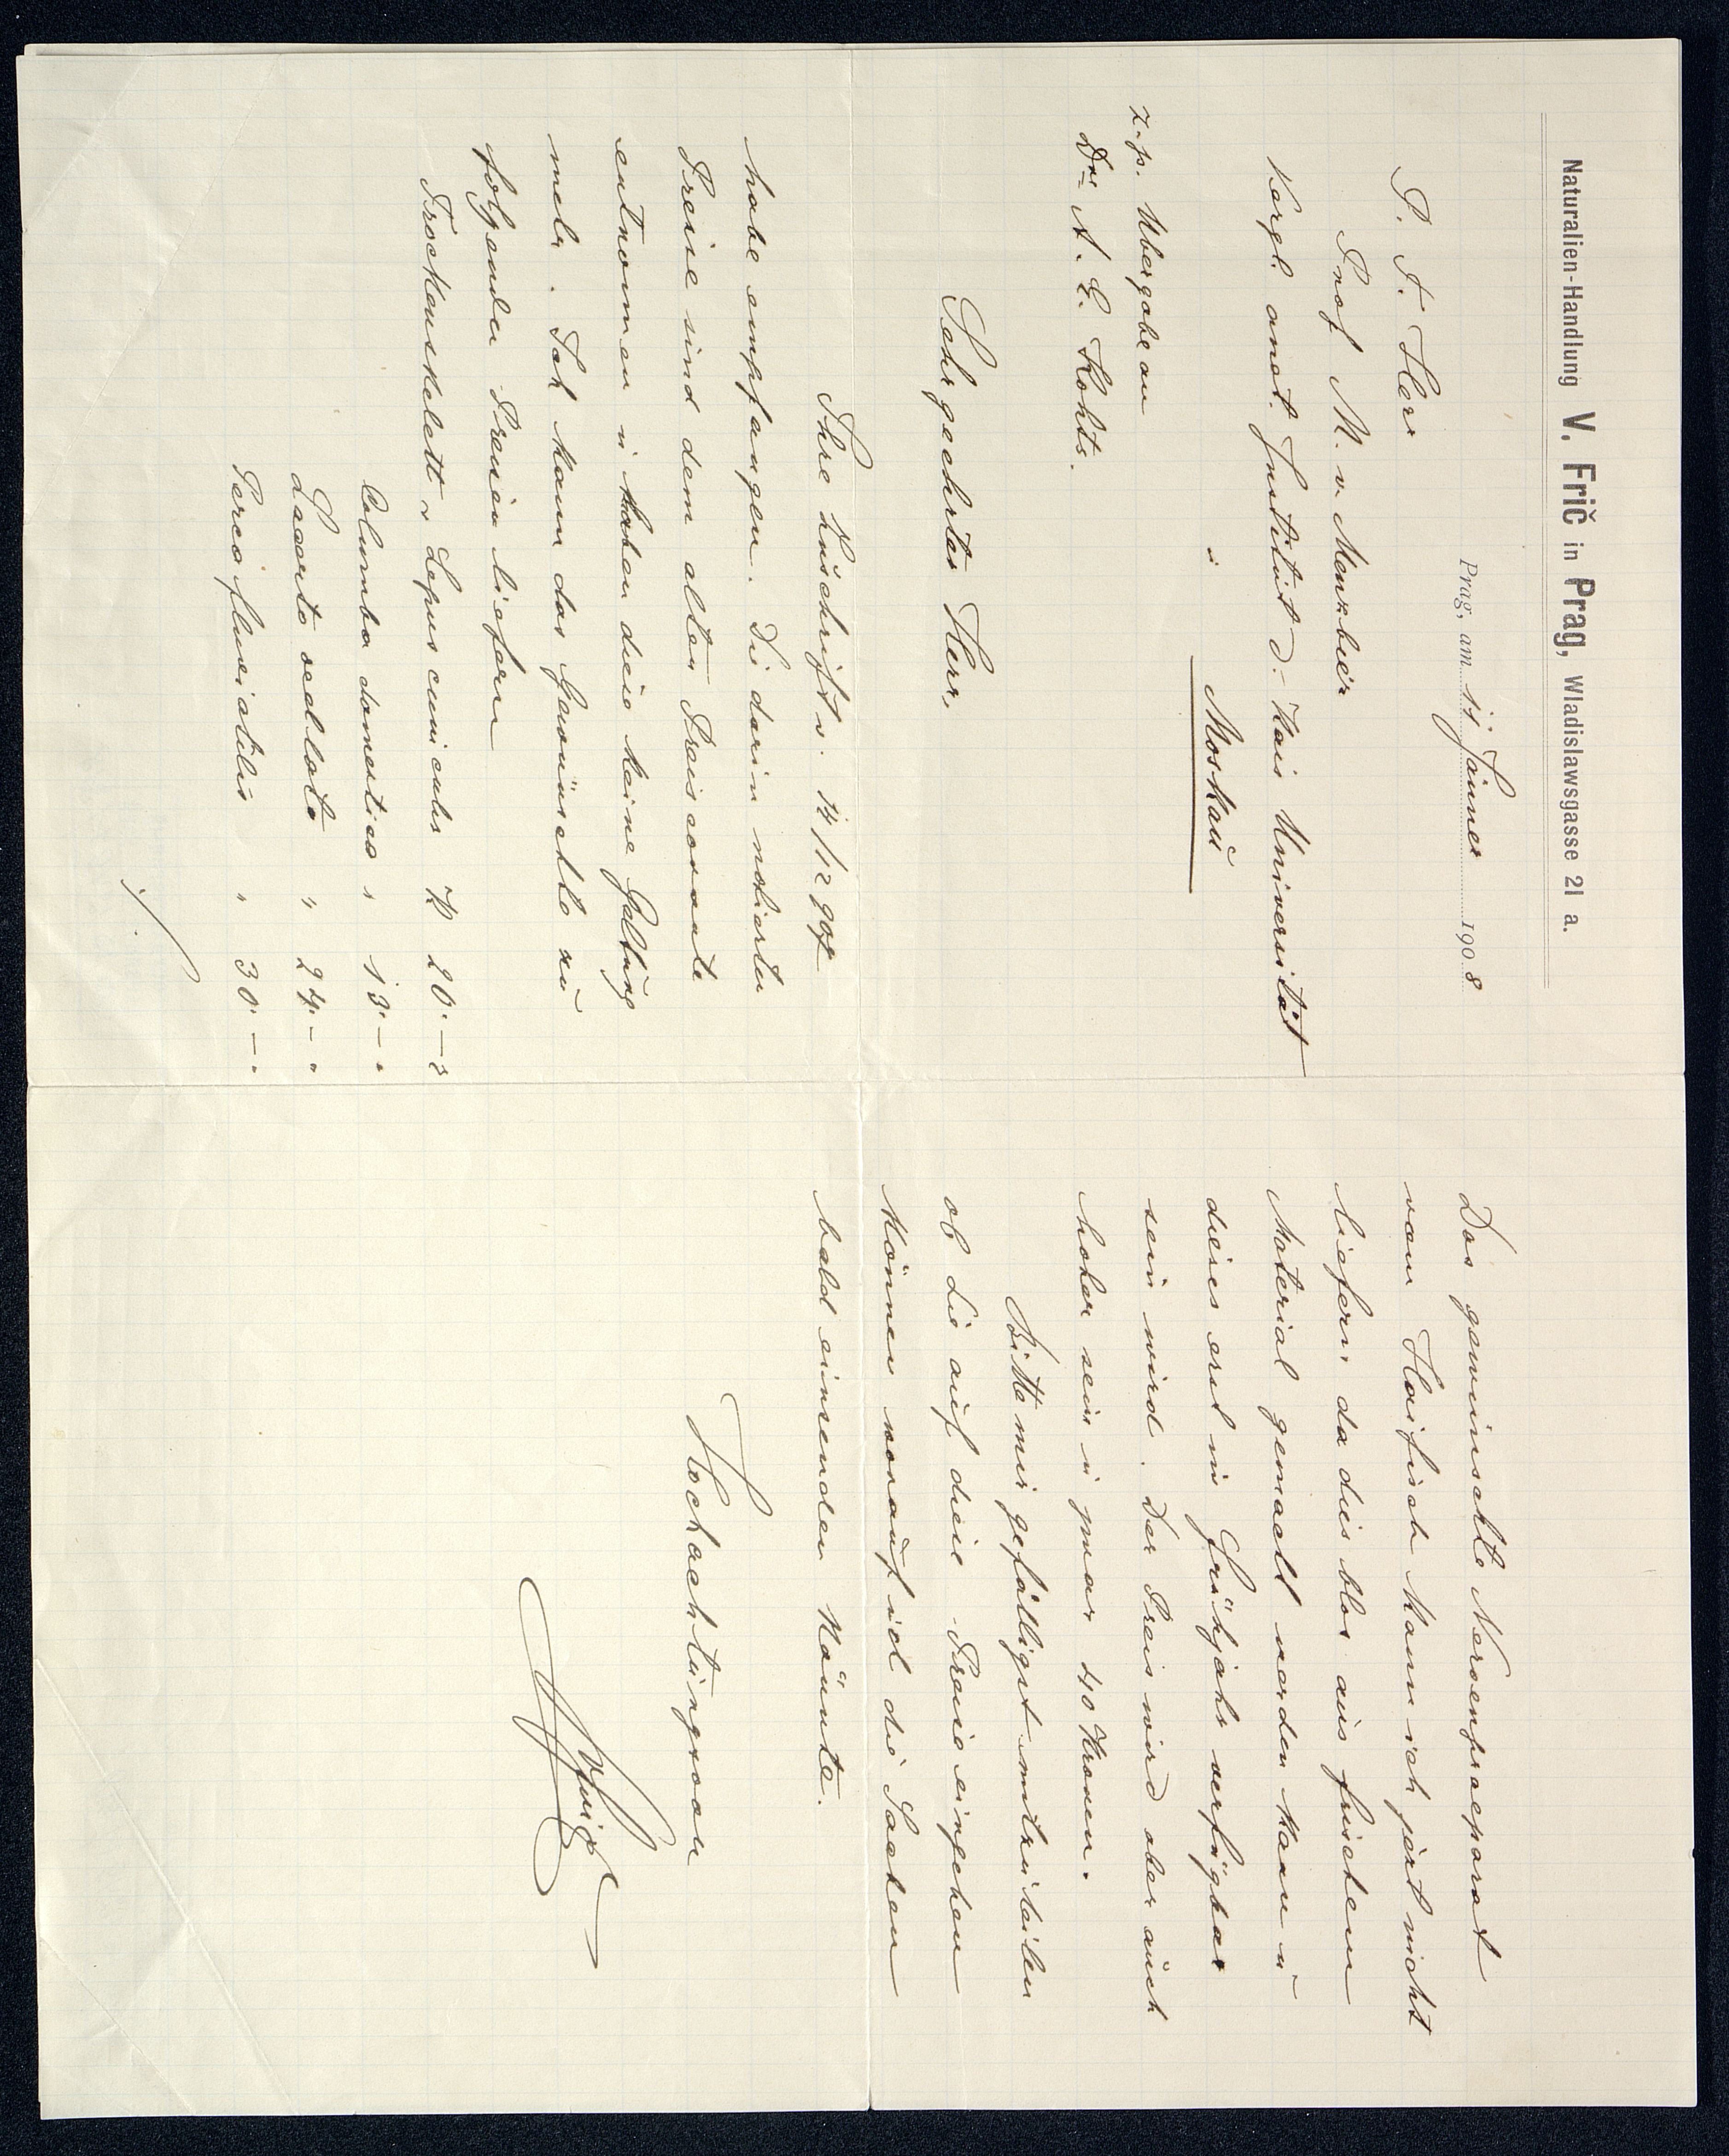 Naturalien-Handlung V. Frič in Prag, Wladislawsgasse 21 a.
Prag, am 14 Jänner 1908
P. T. Herr
Prof M. v Menzbier
Vergl. anat. Institut d. Kais Universität
in Moskau
z. p. Übergabe an
Dr A. E. Kohts.
Sehr geehrter Herr,
Ihre Zuschrift v. 14/12 907
habe empfangen. Die darin notierten
Preise sind dem alten Preiscourante
entnommen u haben diese keine Geltung
mehr. Ich kann das Gewünschte zu
folgenden Preisen liefern
Trockenskelett v Lepus cuniculus K 20·–
Columba domestica " 13·– "
Lacerta ocellata " 24·– "
Perca fluviatilis " 30·– "
./.
Das gewünschte Nervenpraeparat
vom Haifisch kann ich jezt nicht
liefern, da dies blos aus frischem
Material gemacht werden kann u
dieses erst im Frühjahr verfügbar
sein wird. Der Preis wird aber auch
hoher sein u zwar 40 Kronen.
Bitte mir gefälligst mitzuteilen
ob Sie auf diese Preise eingehen
können worauf ich die Sachen
bald einsenden könnte.
Hochachtungsvoll
VFrič